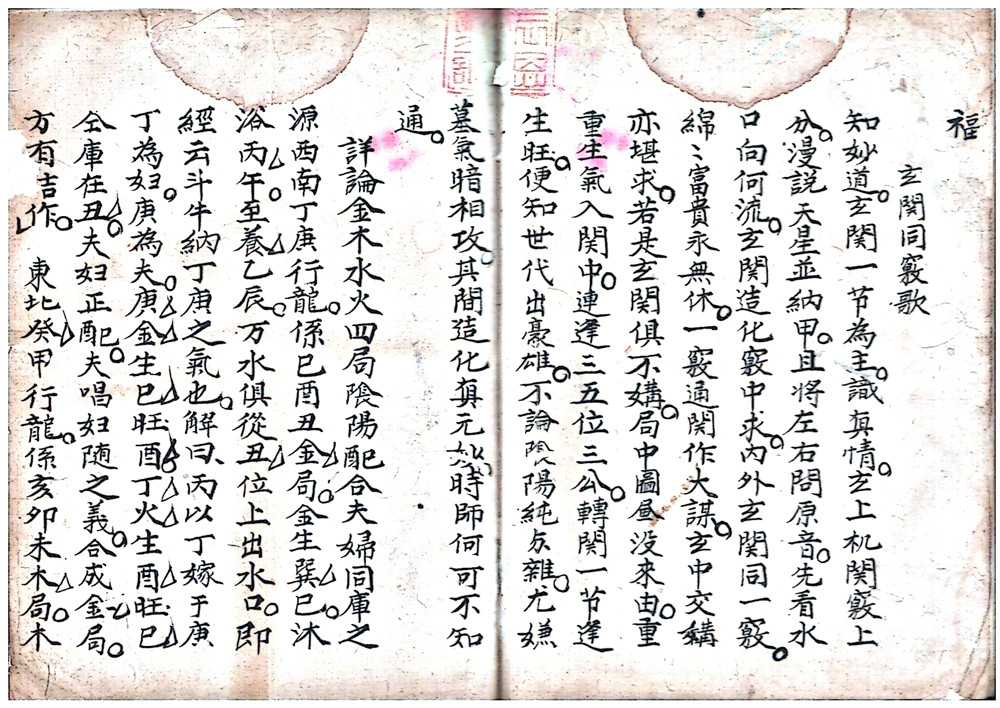 福
玄関同竅歌
知妙道玄関一节為主識真情玄上机関竅上
分漫説天星並納甲且将左右問原音先看水
口向何流玄関造化竅中求内外玄関同一竅
綿〻富貴永無休一竅通関作大謀玄中交媾
亦堪求若是玄関俱不媾局中圖 没来由重
重生氣入関中連逢三五位三公轉関一节逢
生旺便知世代出豪雄不論陰陽純与雜尤嫌
墓氣暗相攻其間造化真元妙時師何可不知
通
詳論金木水火四局陰陽配合夫婦同庫之
源西南丁庚行龍係巳酉丑金局金生巽巳沐
浴丙午至養乙辰万水俱從丑位上出水口即
經云斗牛納丁庚之氣也解曰丙以丁嫁于庚
丁為妇庚為夫庚金生巳旺酉丁火生酉旺巳
仝庫在丑夫妇正配夫唱妇随之義合成金局
方有吉作 東北癸甲行龍係亥卯未木局木